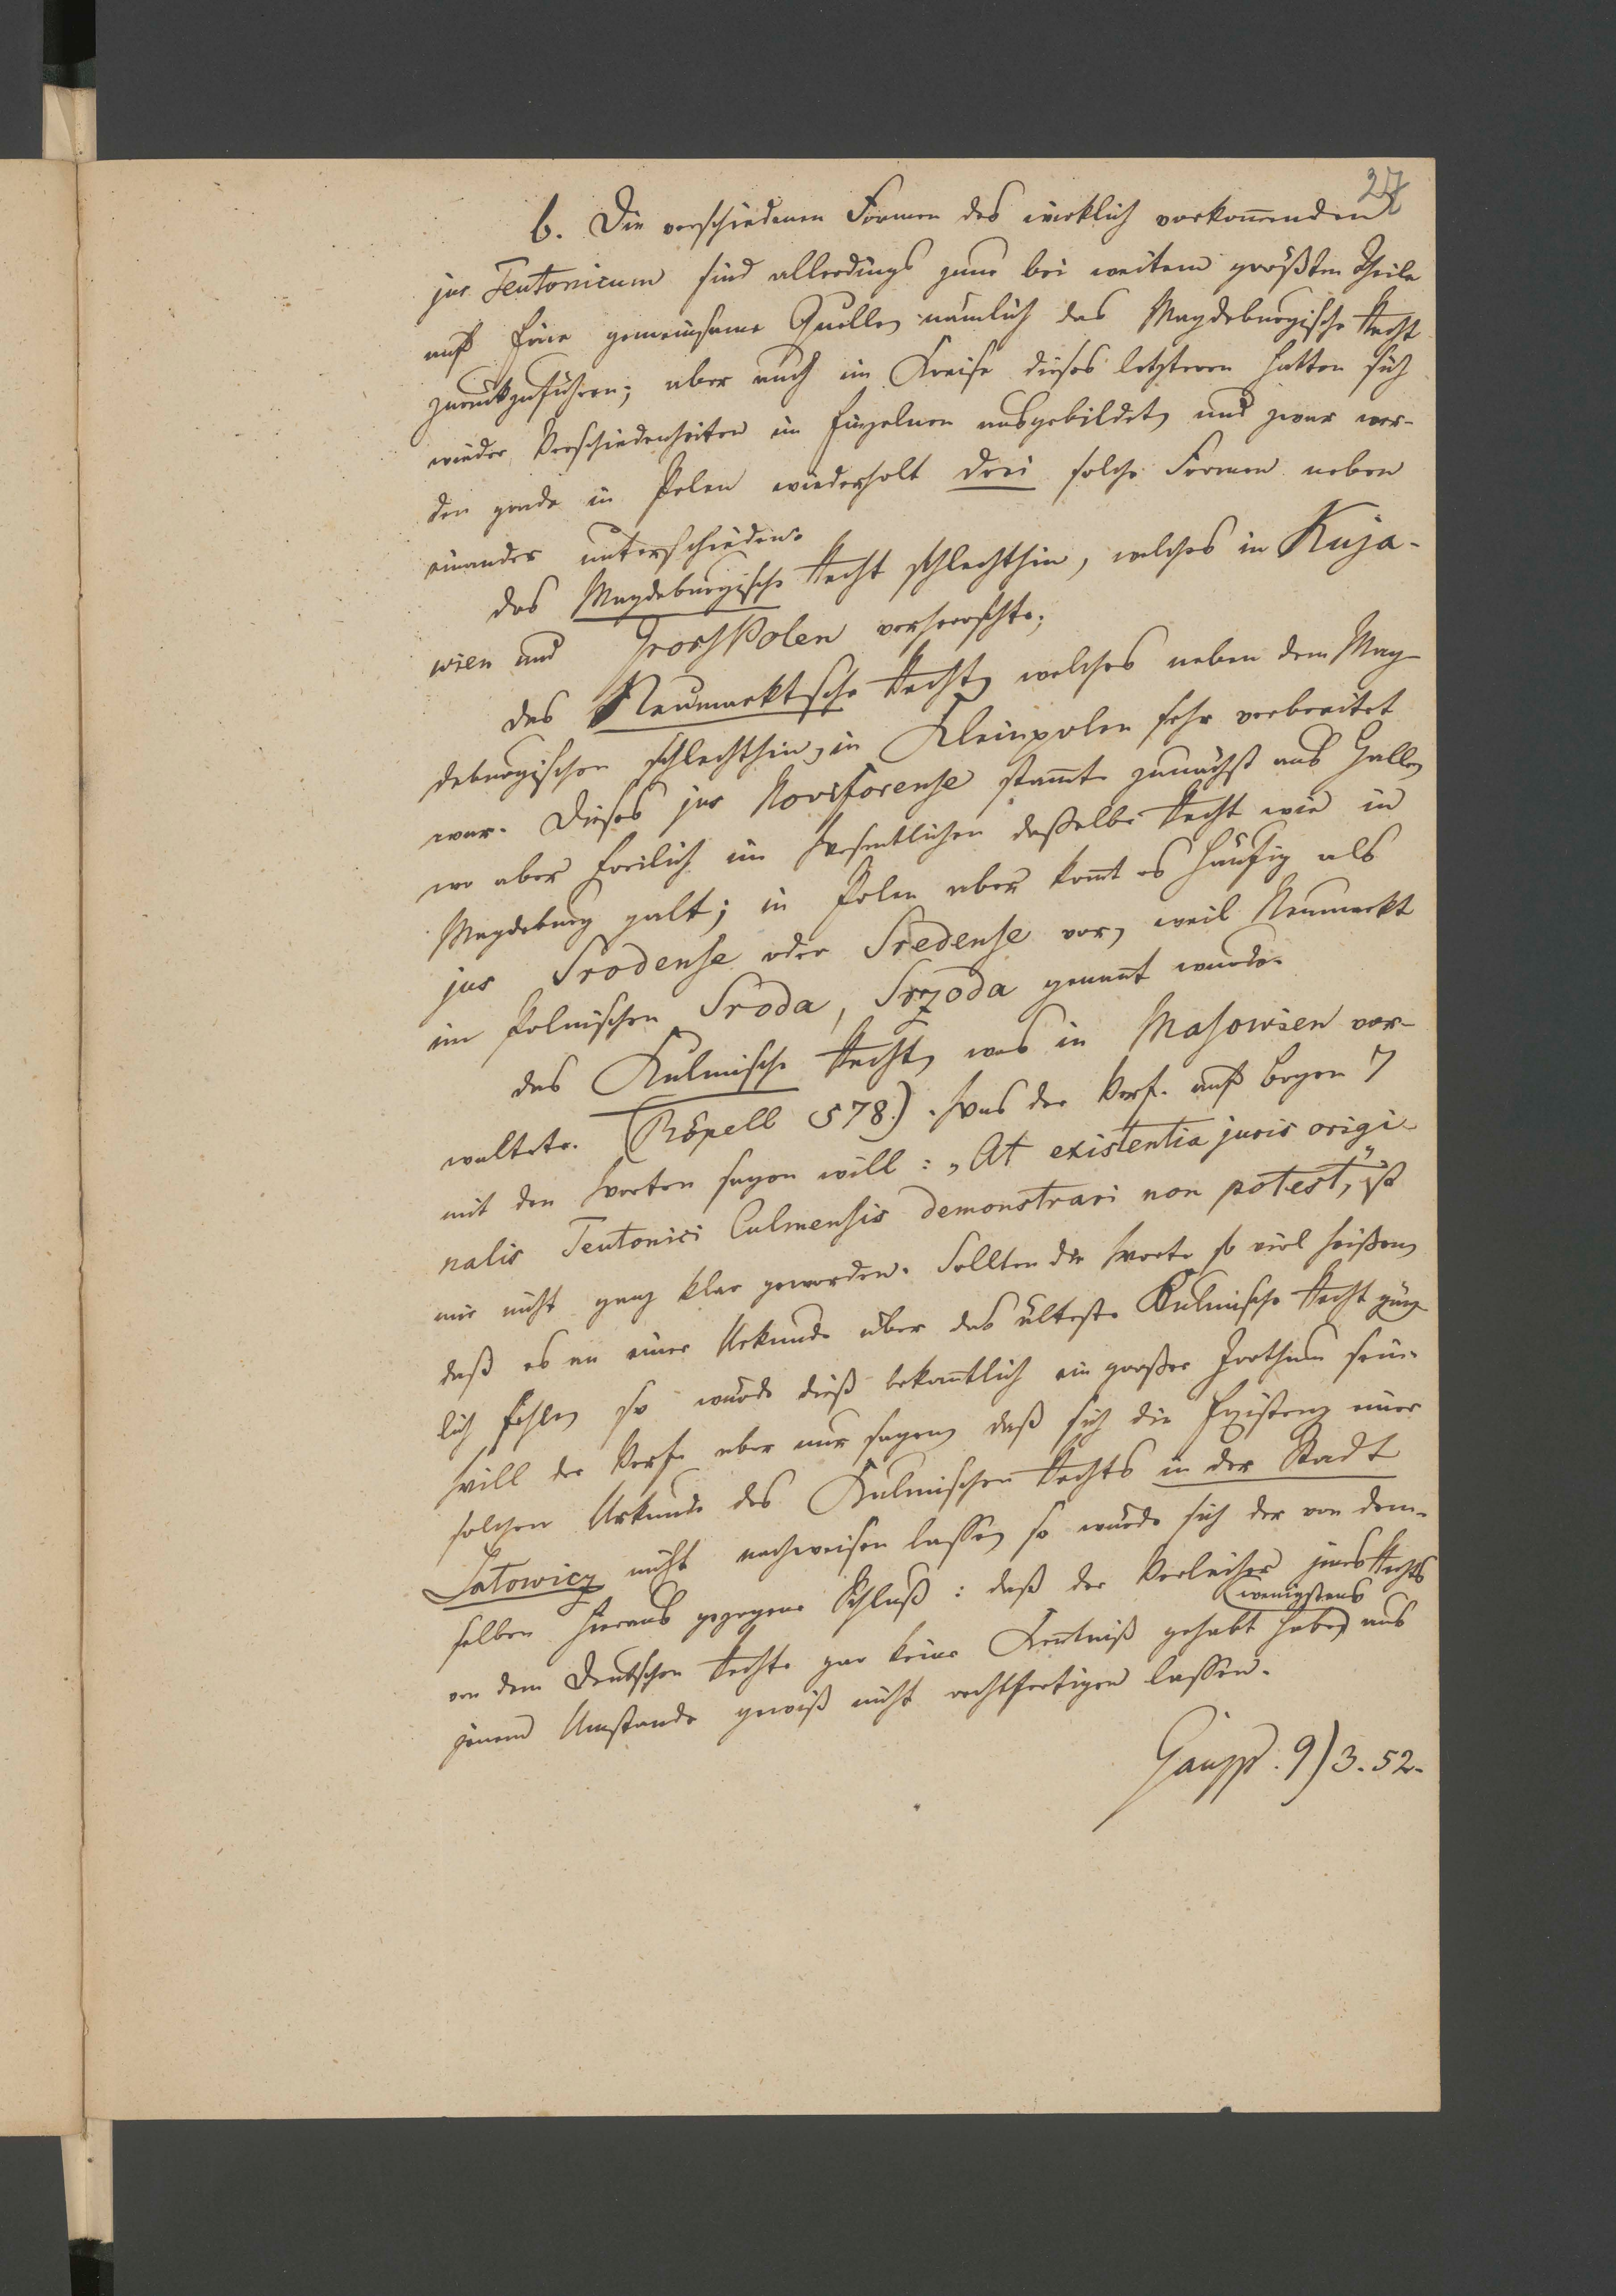 27
b. Die verschiedenen Formen des wirklich vorkom̅enden
jus Teutonicum sind allerdings zum bei weitem größten Theile
auf Eine gemeinsame Quelle, nämlich das Magdeburgische Recht
zurückzuführen; aber auch im Kreise dieses letzteren hatten sich
wieder Verschiedenheiten im Einzelnen ausgebildet, und zwar wer-
den grade in Polen wiederholt drei solche Formen neben
einander unterschieden.
das Magdeburgische Recht schlechthin, welches in Kuja-
wien und GrossPolen vorherrschte;
das Neumarktsche Recht, welches neben dem Mag-
deburgischen schlechthin, in Kleinpolen sehr verbreitet
war. Dieses jus Noviforense stam̅te zunächst aus Halle,
wo aber freilich im Wesentlichen dasselbe Recht wie in
Magdeburg galt; in Polen aber kom̅t es häufig als
jus Srodense oder Sredense vor, weil Neumarkt
im Polnischen Sroda, Srzoda genan̅t wurde.
das Kulmische Recht, was in Masowien vor-
waltete. (Röpell 578.). Was der Verf. auf Bogen 7
mit den Worten sagen will: „At existentia juris origi-
nalis Teutonici Culmensis demonstrari non potest,“ ist
mir nicht ganz klar geworden. Sollten die Worte so viel heißen,
daß es an einer Urkunde über das älteste Kulmische Recht gänz-
lich fehle, so würde dieß bekan̅tlich ein großer Irrthum sein.
Will der Verf. aber nur sagen, daß sich die Existenz einer
solchen Urkunde des Kulmischen Rechts in der Stadt
Latowicz nicht nachweisen lasse, so würde sich der von dem-
selben hieraus gezogene Schluß: daß der Verleiher jenes Rechts
wenigstens
von dem Deutschen Rechte gar keine Ken̅tniß gehabt habe, aus
jenem Umstande gewiß nicht rechtfertigen lassen.
Gaupp. 9) 3. 52.